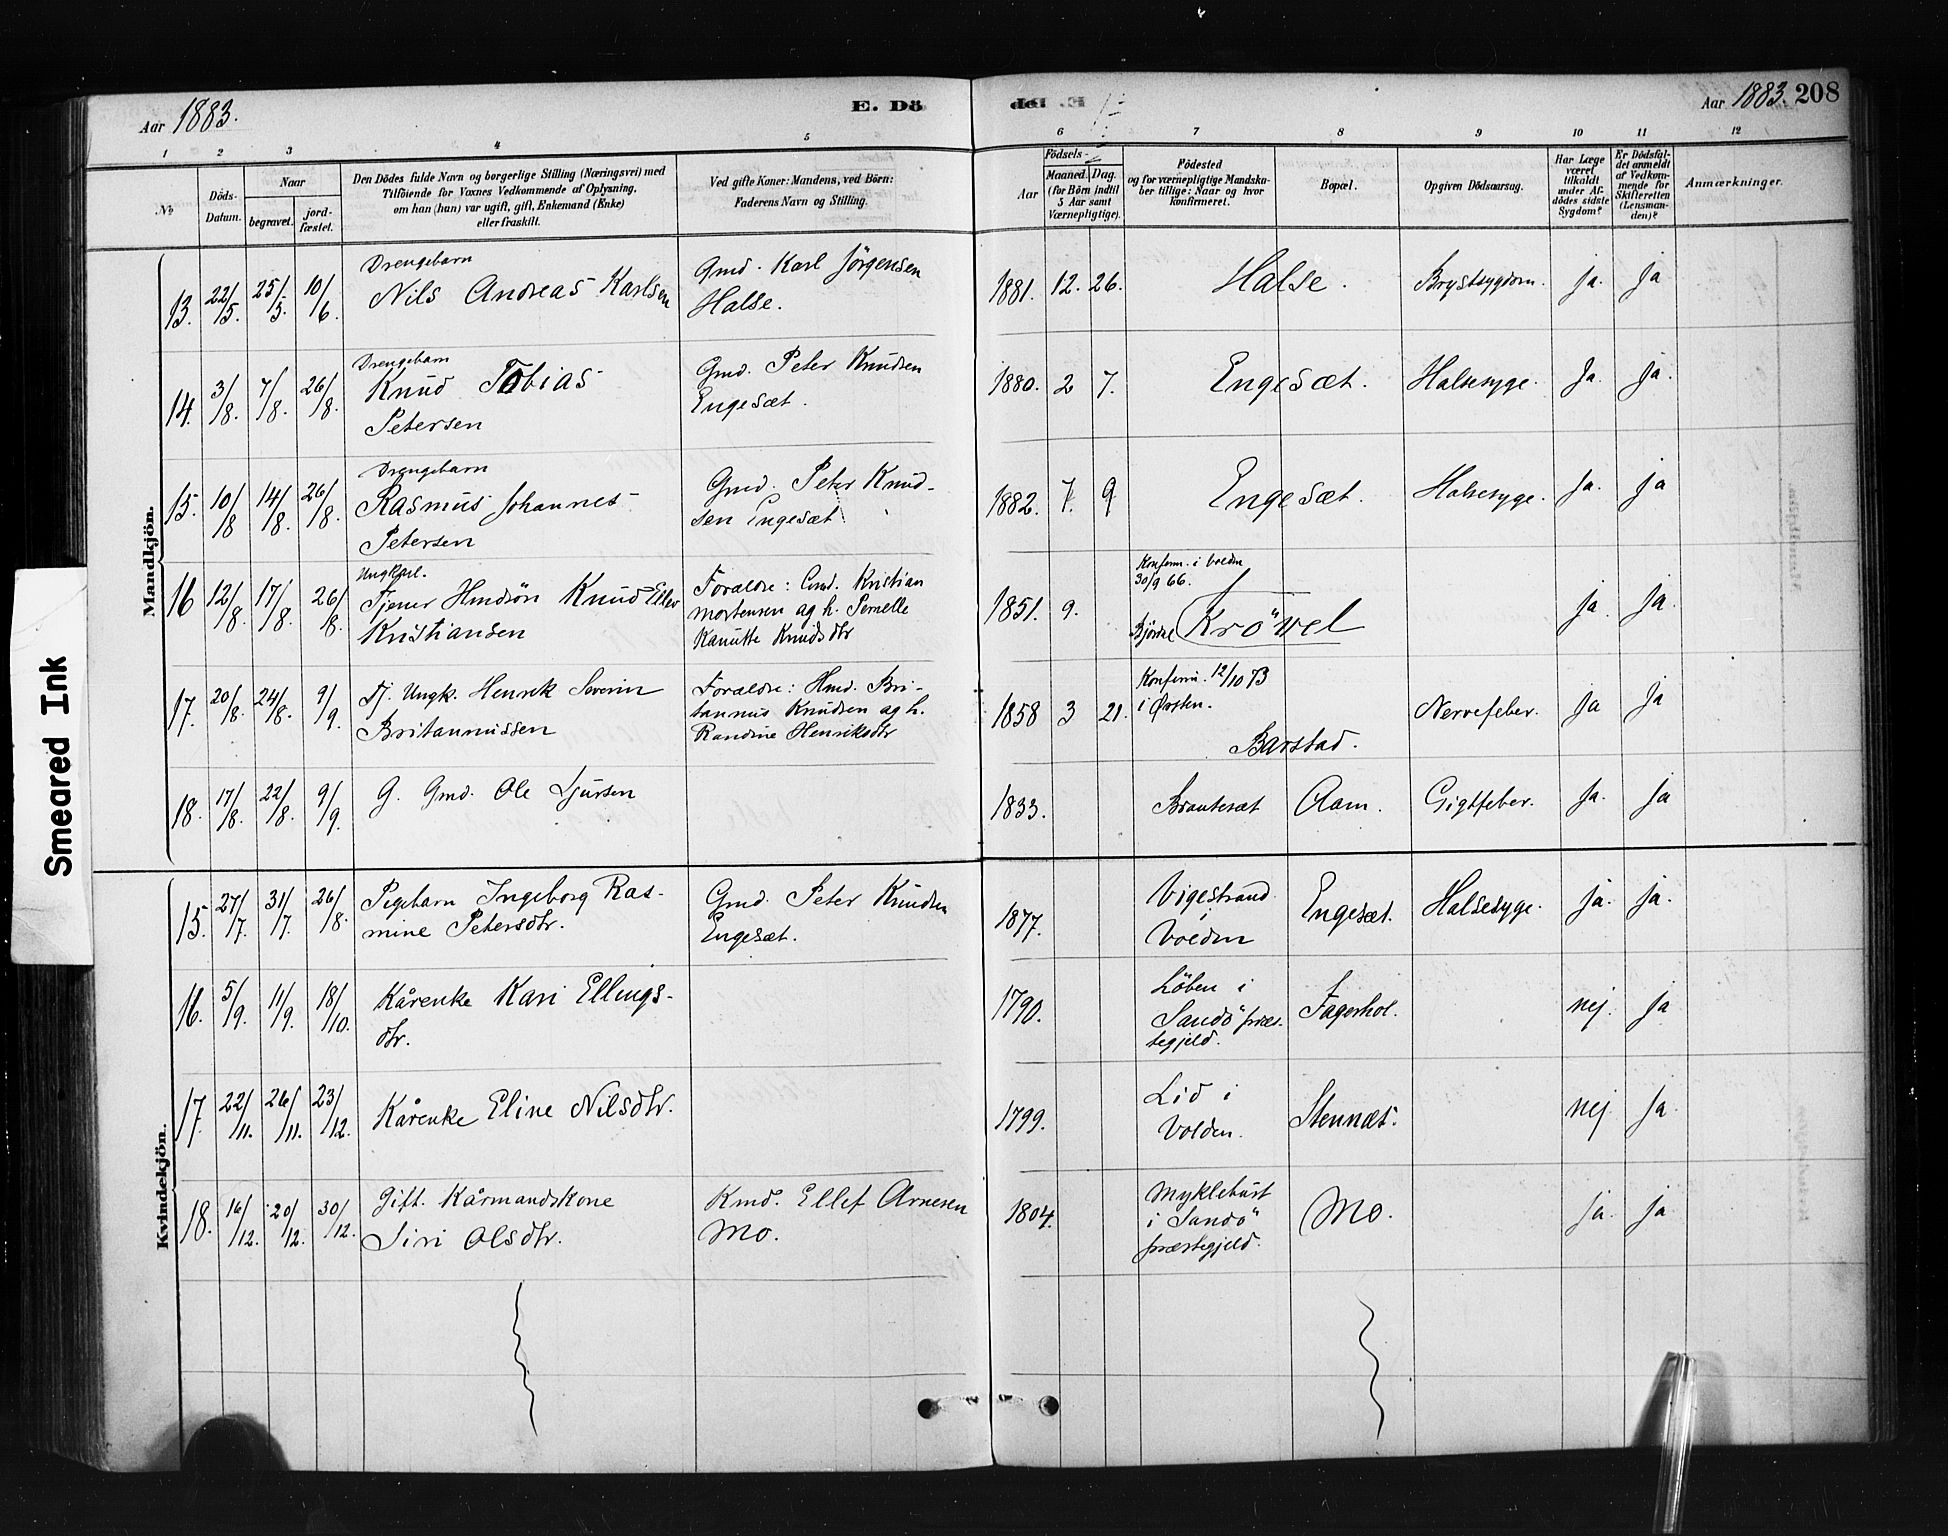 Aar 1883.
E. Dö
del E.
Aar 1883. 208
1 2 3 4 5 6 7 8 9 10 11 12
№
Döds-
Datum.
Naar
begravet.
jord-
fæstet.
Den Dödes fulde Navn og borgerlige Stilling (Næringsvei) med
Tilföiende for Voxnes Vedkommende af Oplysning,
om han (hun) var ugift, gift, Enkemand (Enke)
eller fraskilt.
Ved gifte Koner: Mandens, ved Börn:
Faderens Navn og Stilling.
Födsels-
Aar
Maaned. Dag.
(for Börn indtil
5 Aar samt
Værnepligtige).
Födested
og for værnepligtige Mandska-
ber tillige: Naar og hvor
konfirmeret.
Bopæl.
Opgiven Dödsaarsag.
Har Læge
været
tilkaldt
under Af-
dödes sidste
Sygdom?
Er Dödsfal-
det anmeldt
af Vedkom-
mende for
Skifteretten
(Lensman-
den)?
Anmærkninger.
Mandkjön.
Drengebarn
13. 22/5. 25/5. 10/6. Nils Andreas Karlsen
Gmd. Karl Jörgensen
Halse.
1881. 12. 26. Halse. Brystsygdom. ja. ja
Drengebarn
14. 3/8. 7/8. 26/8. Knud Tobias
Petersen
Gmd. Peter Knudsen
Engesæt.
1880. 2 7. Engesæt. Halsesyge. Ja. ja.
Drengebarn
15. 10/8 14/8. 26/8. Rasmus Johannes
Petersen
Gmd. Peter Knud-
sen Engesæt
1882. 7. 9 Engesæt. Halsesyge. Ja. ja
Ungkarl.
16 12/8. 17/8. 26/8. Tjener Knud
Kristiansen
Forældre: Gmd. Kristian
Mortensen og h. Pernelle
Kanutte Knudsdtr
1851. 9.
Konferm. i Volden
30/9 66.
Krövel ja. ja.
17. 20/8. 24/8. 9/9. Tj. Ungk. Henrik Severin
Britannussen
Forældre: Hmd. Bri-
tannus Knudsen og h.
Randine Henriksdtr
1858 3 21.
Konferm. 12/10 73
i Örsten.
Barstad.
Nervefeber. ja ja
18. 17/8. 22/8. 9/9. G. Gmd. Ole Sjursen
1833. Brautesæt Aam. Gigtfeber. Ja. Ja
Kvindekjön.
15. 27/7. 31/7. 26/8. Pigebarn Ingeborg Ras-
mine Petersdtr.
Gmd. Peter Knudsen
Engesæt.
1877. Vigestrand
i
Volden
Engesæt. Halsesyge. ja. ja.
16. 5/9. 11/9. 18/10. Kårenke Kari Ellings-
dtr.
1790. Löben i
Sandö præs-
tegjeld.
Fagerhol. nej. ja
17. 22/11. 26/11. 23/12. Kårenke Eline Nilsdtr.
1799. Lid i
Volden.
Stennæs. nej. Ja.
18. 16/12. 20/12. 30/12. Gift. Kårmandskone
Siri Olsdtr.
Kmd. Ellef Arnesen
Mo.
1804. Myklebust
i Sandö
præstegjeld.
Mo. ja. ja
Smeared Ink